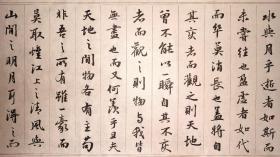 水與月乎逝者如斯而
未嘗往也盈虛者如代
而卒莫消長也蓋將自
其變者而觀之則天地
曾不能以一瞬自其不變
者而觀之則物與我皆
無盡也而又何羨乎且夫
天地之間物各有主苟
非吾之所有雖一毫而
莫取惟江上之清風與
山間之明月耳得之而